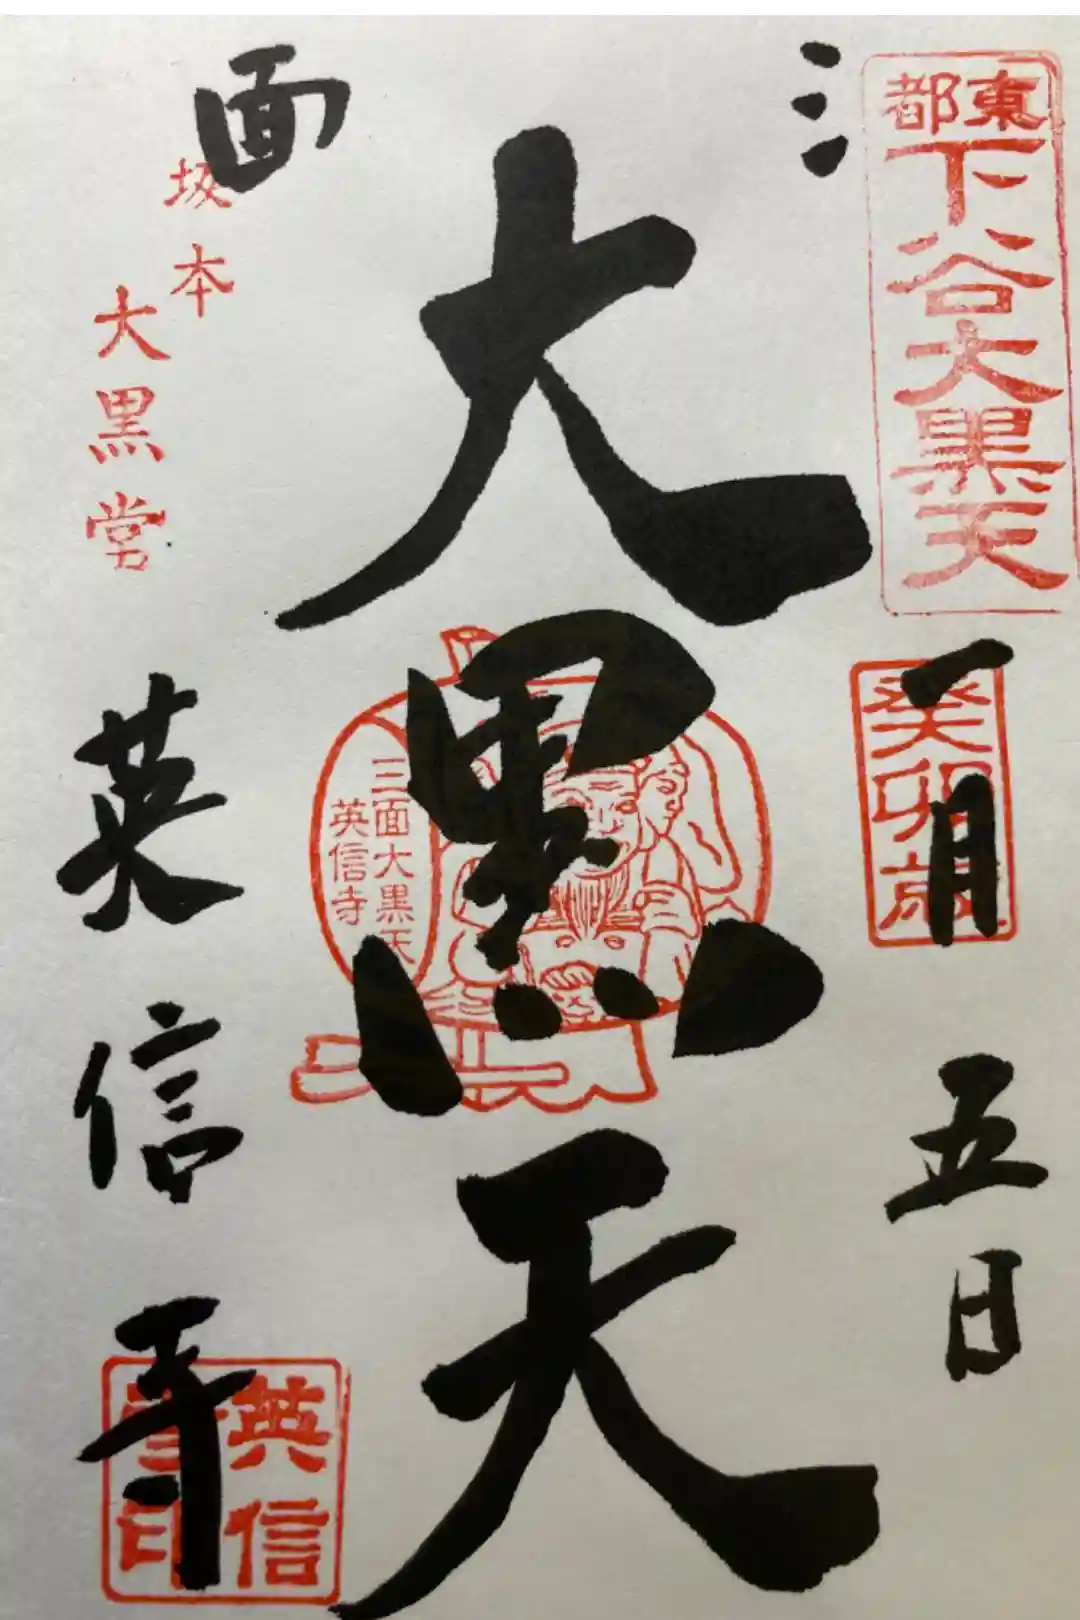 東都
下谷大黒天
癸卯歳
一月五日
三面
大黒天
三面大黒天
英信寺
坂本
大黒堂
英信寺
英信寺印